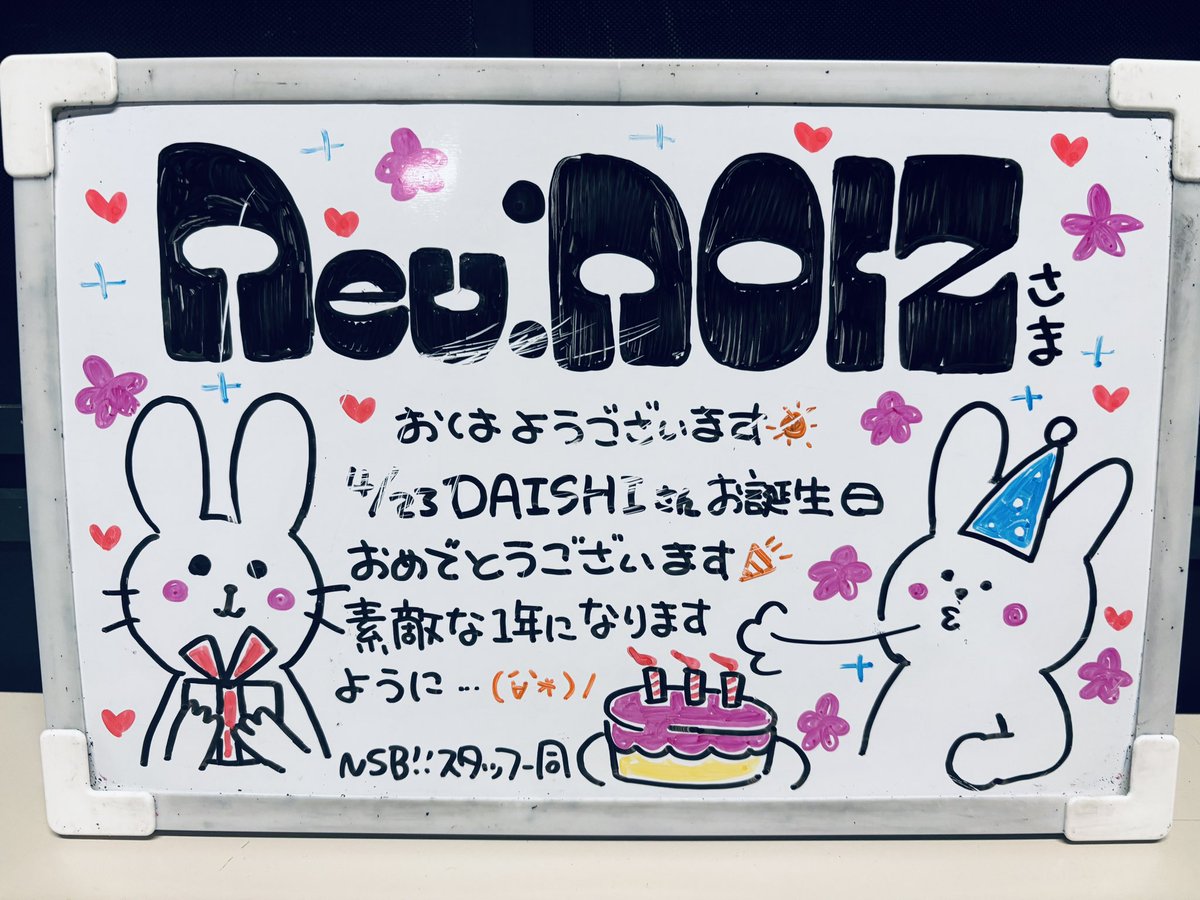 Neu:NOIZ さま
おはようございます
4/23 DAISHIさんお誕生日
おめでとうございます
素敵な1年になります
ように…(*´`*)/
NSB!!スタッフ一同